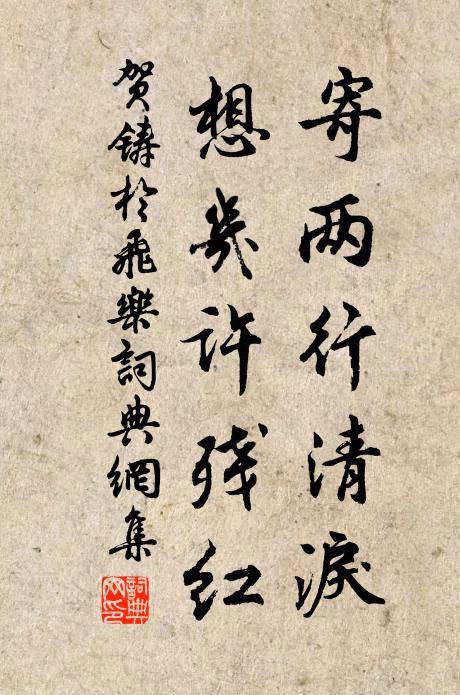 寄两行清淚
想幾许残红
贺铸於飛樂詞典網集
詞典
网印